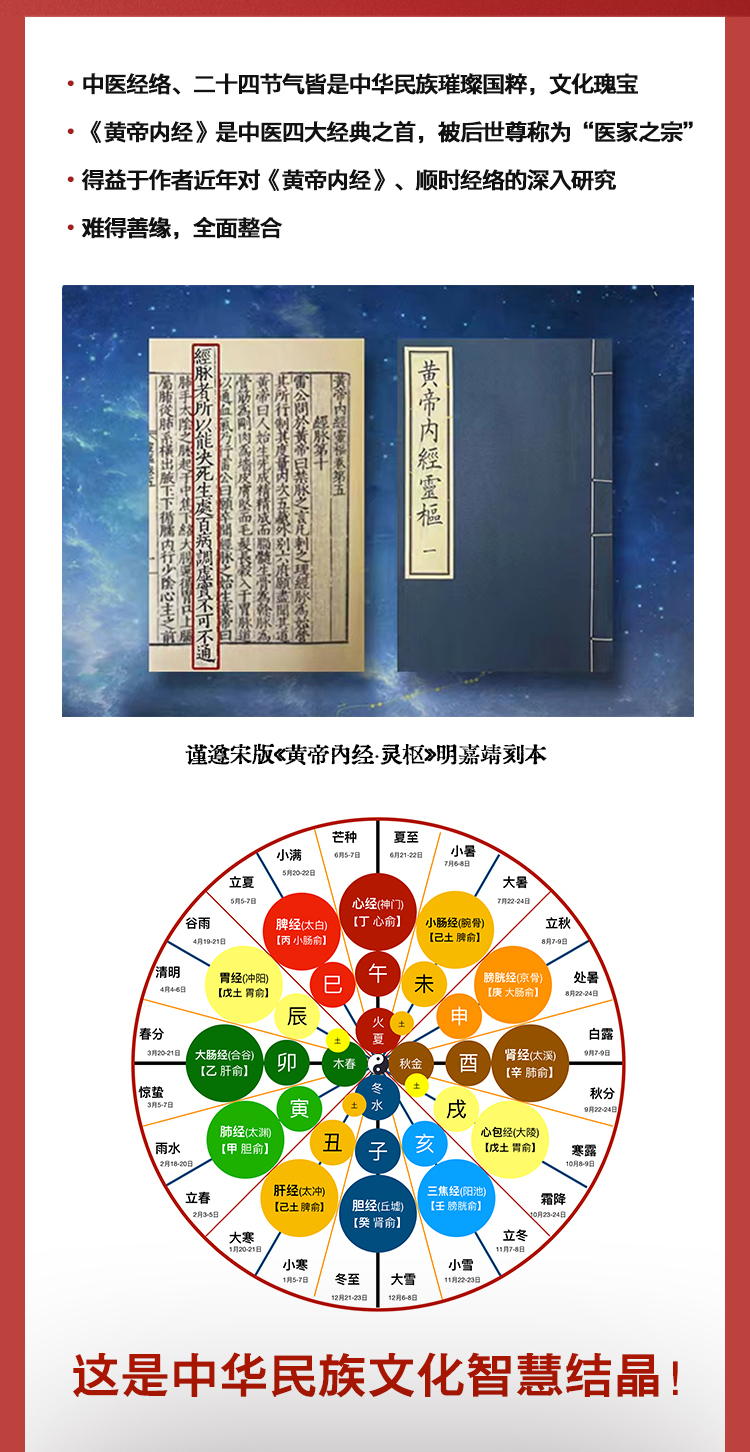 ·中医经络、二十四节气皆是中华民族璀璨国粹，文化瑰宝
·《黄帝内经》是中医四大经典之首，被后世尊称为“医家之宗”
·得益于作者近年对《黄帝内经》、顺时经络的深入研究
·难得善缘，全面整合
黃帝內經靈樞卷第五
經脉第十
雷公問於黃帝曰禁脉之言凡刺之理經脉為始營
其所行制其度量內次五藏外別六府願盡聞其道
黃帝曰人始生先成精精成而腦髓生骨為幹脉為
營筋為剛肉為墻皮膚堅而毛髮長穀入于胃脉道
以通血氣乃行雷公曰願卒聞經脉之始生黃帝曰
經脉者所以能決死生處百病調虛實不可不通
肺手太陰之脉起于中焦下絡大腸還循胃口上膈
屬肺從肺系橫出腋下下循臑內行少陰心主之前
黃帝內經靈樞 一
谨遵宋版《黄帝内经·灵枢》明嘉靖刻本
芒种
6月5-7日
夏至
6月21-22日
小暑
7月6-8日
大暑
7月22-24日
立秋
8月7-9日
处暑
8月22-24日
白露
9月7-9日
秋分
9月22-24日
寒露
10月8-9日
霜降
10月23-24日
立冬
11月7-8日
小雪
11月22-23日
大雪
12月6-8日
冬至
12月21-23日
小寒
1月5-7日
大寒
1月20-21日
立春
2月3-5日
雨水
2月18-20日
惊蛰
3月5-7日
春分
3月20-21日
清明
4月4-6日
谷雨
4月19-21日
立夏
5月5-7日
小满
5月20-22日
心经(神门)
【丁 心俞】
小肠经(腕骨)
【己土 脾俞】
膀胱经(京骨)
【庚 大肠俞】
肾经(太溪)
【辛 肺俞】
心包经(大陵)
【戊土 胃俞】
三焦经(阳池)
【壬 膀胱俞】
胆经(丘墟)
【癸 肾俞】
肝经(太冲)
【己土 脾俞】
肺经(太渊)
【甲 胆俞】
大肠经(合谷)
【乙 肝俞】
胃经(冲阳)
【戊土 胃俞】
脾经(太白)
【丙 小肠俞】
午
未
申
酉
戌
亥
子
丑
寅
卯
辰
巳
火
夏
土
秋金
土
冬
水
土
木春
土
这是中华民族文化智慧结晶！